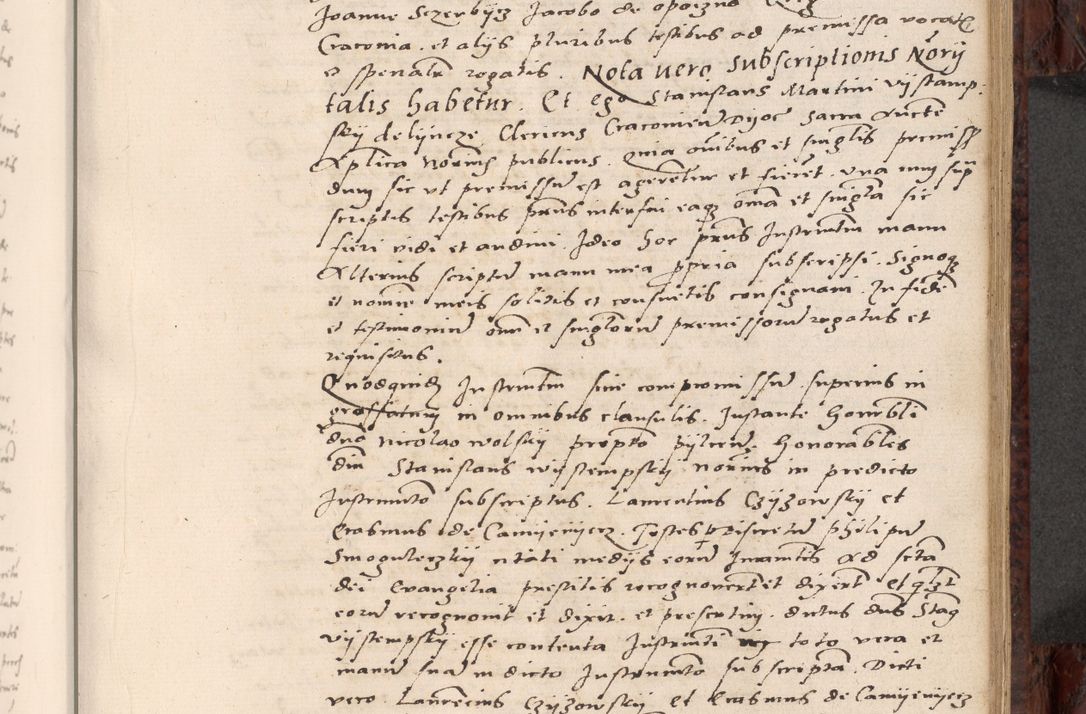 Joanne Sczerbycz Jacobo de opoczno
Craconia. et alijs pluribus testibus ad premissa vocatis
et specialiter rogatis. Nota vero subscriptionis Norij
talis habetur. Et ego Stanislaus Martini vijstamp:
skij delijncze Clericus Cracovien Dijoc sacra Aucte
Aplica Norius publicus. Quia oibus et singlis premiss
dum sic ut premissum est agerentur et fierent. una cum sup
scriptis testibus pns interfui eaq oma et singla sic
fieri vidi et audivi. Ideo hoc pns Instrumtum manu
Alterius scriptu manu mea ppria subscripsi. Signoq
et nomie meis solitis et consuetis consignavi. In fide
et testimoniu oim et singloru premissoru rogatus et
requisitus.
Quodquid Instrumtum sive compromissu superius in
grossatum in omnibus clausulis. Instante honorbli
dno nicolao wolskij prepto pijlcen. honorabiles
dni Stanislaus wijstempskij norius in predicto
Instrumto subscriptus. Laurentius Czijzowskij et
Erasmus de Camijenijecz. Testes discretu philipu
Smoguleczkij citati medijs eoru Iuramtis ad scta
dei Evangelia prestitis recognoverut et dixerut et qlbt
eoru recognovit et dixit. et presertim. dictus dns Stas
vijstempskij esse contenta Instrumti toto vera et
manu sua in dicto Instrumto subscripta. Dicti
vero Laurecius Czijzowskij et Erasmus de Camijenijecz